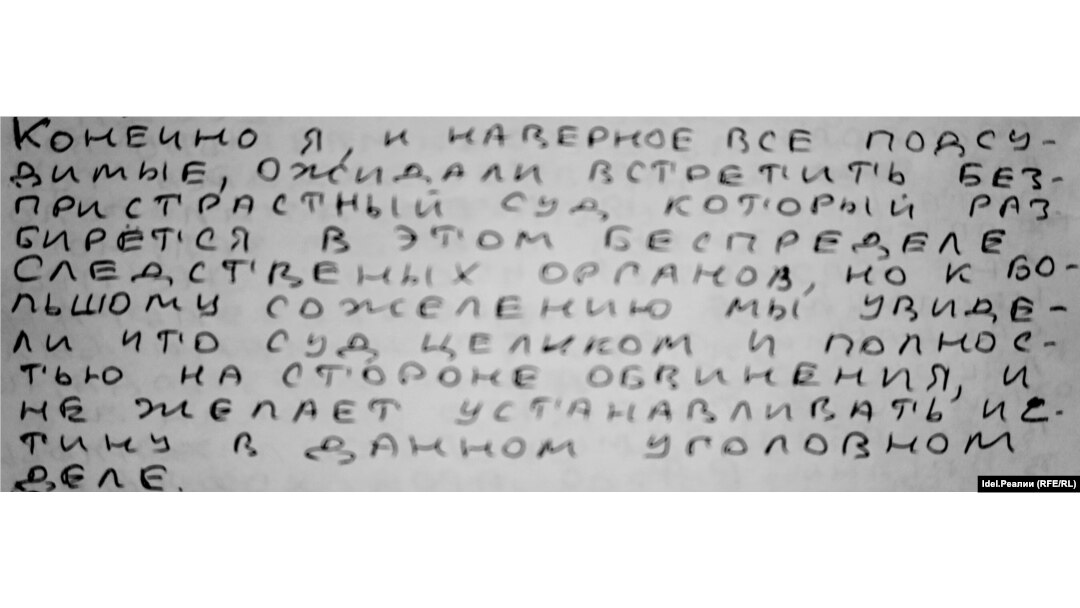 Конечно я, и наверное все подсу-
димые, ожидали встретить без-
пристрастный суд, который раз
бирётся в этом беспределе
следственых органов, но к бо-
льшому сожелению мы увиде-
ли что суд целиком и полнос-
тью на стороне обвинения, и
не желает устанавливать ис-
тину в данном уголовном
деле.
Idel.Реалии (RFE/RL)